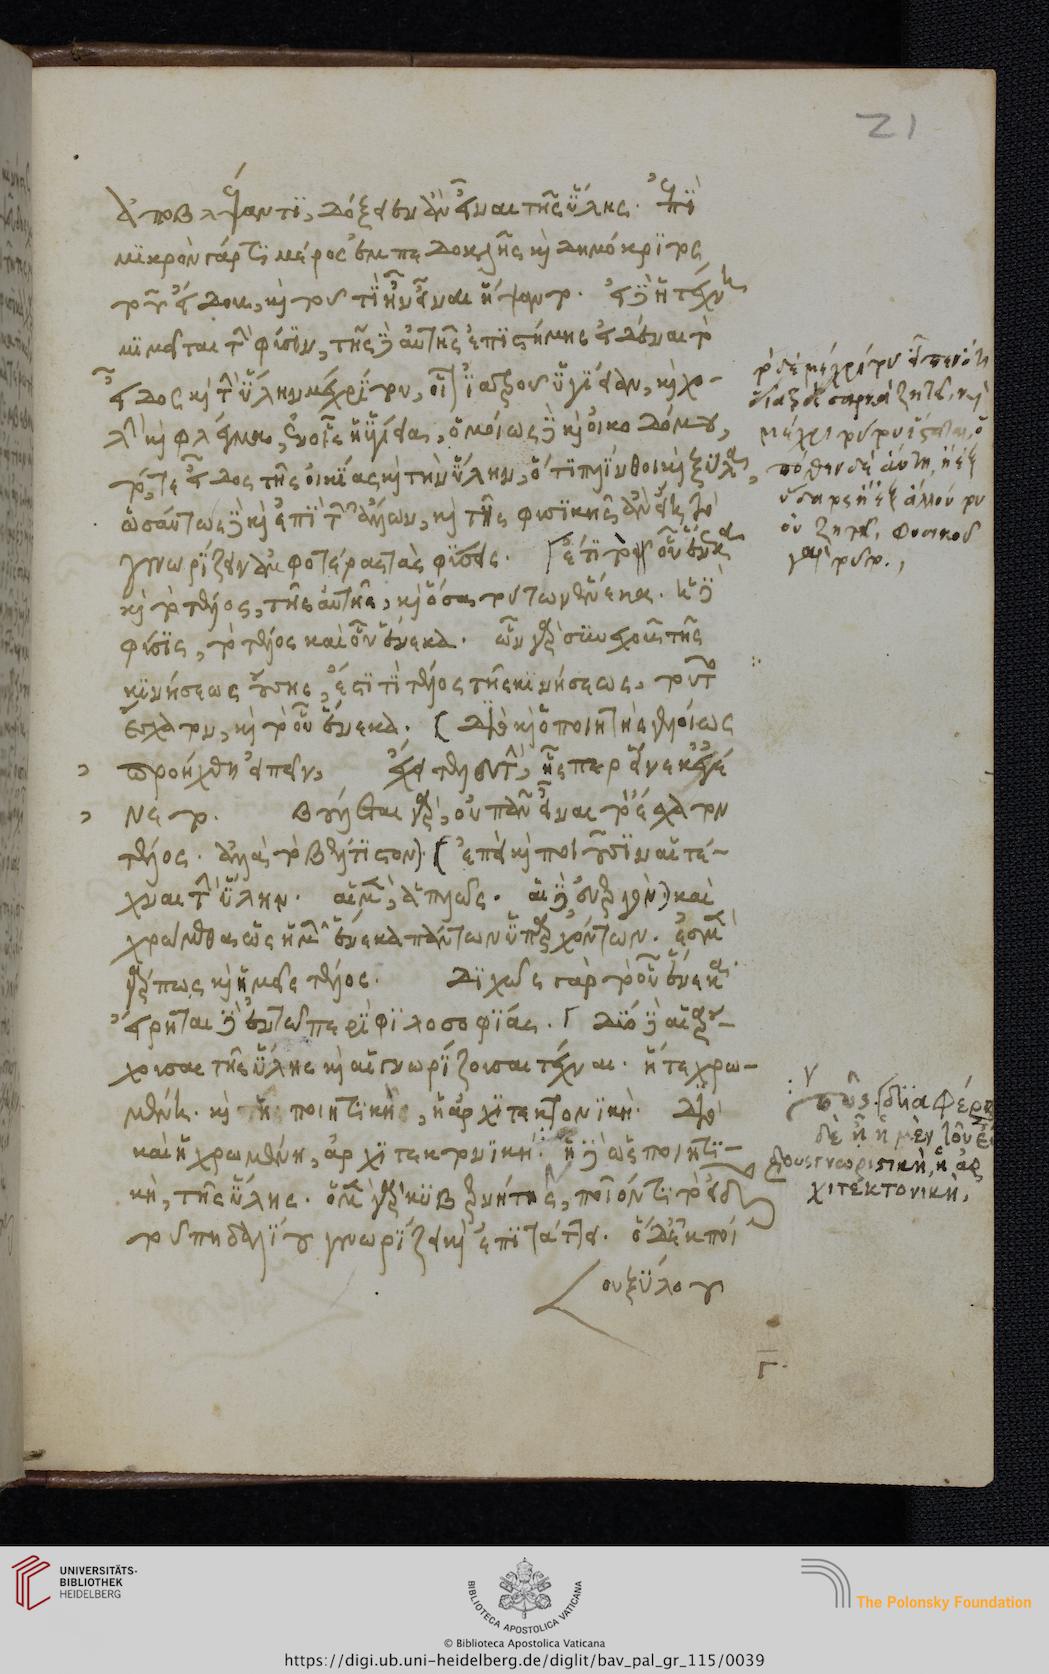 21
ἀποβλέψαντι, δόξειεν ἂν εἶναι τῆς ὕλης. ἐπὶ
μικρὸν γάρ τι μέρος ἐμπεδοκλῆς καὶ δημόκριτος
τοῦ εἴδους, καὶ τοῦ τί ἦν εἶναι ἥψαντο. εἰ δὲ ἡ τέχνη
μιμεῖται τὴν φύσιν, τῆς δὲ αὐτῆς ἐπιστήμης εἰδέναι τὸ
εἶδος καὶ τὴν ὕλην μέχρι του, οἷον ἰατροῦ ὑγίειαν, καὶ χο-
λὴν καὶ φλέγμα, ἐν οἷς ἡ ὑγίεια, ὁμοίως δὲ καὶ οἰκοδόμου,
τό, τε εἶδος τῆς οἰκίας καὶ τὴν ὕλην, ὅτι πλίνθοι καὶ ξύλα,
ὡσαύτως δὲ καὶ ἐπὶ τῶν ἄλλων, καὶ τῆς φυσικῆς ἂν εἴη τὸ
γνωρίζειν ἀμφοτέρας τὰς φύσεις. ἔτι τὸ οὗ ἕνεκα
καὶ τὸ τέλος, τῆς αὐτῆς, καὶ ὅσα τούτων ἕνεκα. ἡ δὲ
φύσις, τὸ τέλος καὶ οὗ ἕνεκα. ὧν γὰρ συνεχοῦς τῆς
κινήσεως οὔσης, ἔστι τι τέλος τῆς κινήσεως, τοῦτο
ἔσχατον, καὶ τὸ οὗ ἕνεκα. διὸ καὶ ὁ ποιητὴς γελοίως
προήχθη εἰπεῖν, ἔχει τελευτήν, ἧσπερ εἵνεκ' ἐγέ
νετο. βούλεται γὰρ, οὐ πᾶν εἶναι τὸ ἔσχατον
τέλος. ἀλλὰ τὸ βέλτιστον. ἐπεὶ καὶ ποιοῦσιν αἱ τέ-
χναι τὴν ὕλην. αἱ μὲν, ἁπλῶς. αἱ δὲ εὐεργόν. καὶ
χρώμεθα ὡς ἡμῶν ἕνεκα πάντων ὑπαρχόντων. ἐσμὲν
γάρ πως καὶ ἡμεῖς τέλος. διχῶς γὰρ τὸ οὗ ἕνεκα.
εἴρηται δὲ ἐν τοῖς περὶ φιλοσοφίας. δύο δὲ αἱ ἄρ-
χουσαι τῆς ὕλης καὶ αἱ γνωρίζουσαι τέχναι. ἥ τε χρω-
μένη. καὶ τῆς ποιητικῆς, ἡ ἀρχιτεκτονική. διὸ
καὶ ἡ χρωμένη, ἀρχιτεκτονική. ἡ δὲ ὡς ποιητι-
κή, τῆς ὕλης. ὁ μὲν γὰρ κυβερνήτης, ποῖόν τι τὸ εἶδος
τοῦ πηδαλίου γνωρίζει καὶ ἐπιτάττει. ὁ δὲ ἐκ ποί
ου ξύλου
τὸ δὲ μέχρι του εἶπεν ὅτι
μέχρι
πόθεν δὲ αὕτη, ἢ ἐξ
οὐ ζητεῖ, φυσικοῦ
γὰρ τοῦτο.
πῶς. διαφέρει
δὲ ᾗ ἡ μὲν τοῦ εἴ
δους γνωριστική, ἡ ἀρ
χιτεκτονική.
Γ.
UNIVERSITÄTS-
BIBLIOTHEK
HEIDELBERG
BIBLIOTECA APOSTOLICA VATICANA
The Polonsky Foundation
© Biblioteca Apostolica Vaticana
https://digi.ub.uni-heidelberg.de/diglit/bav_pal_gr_115/0039